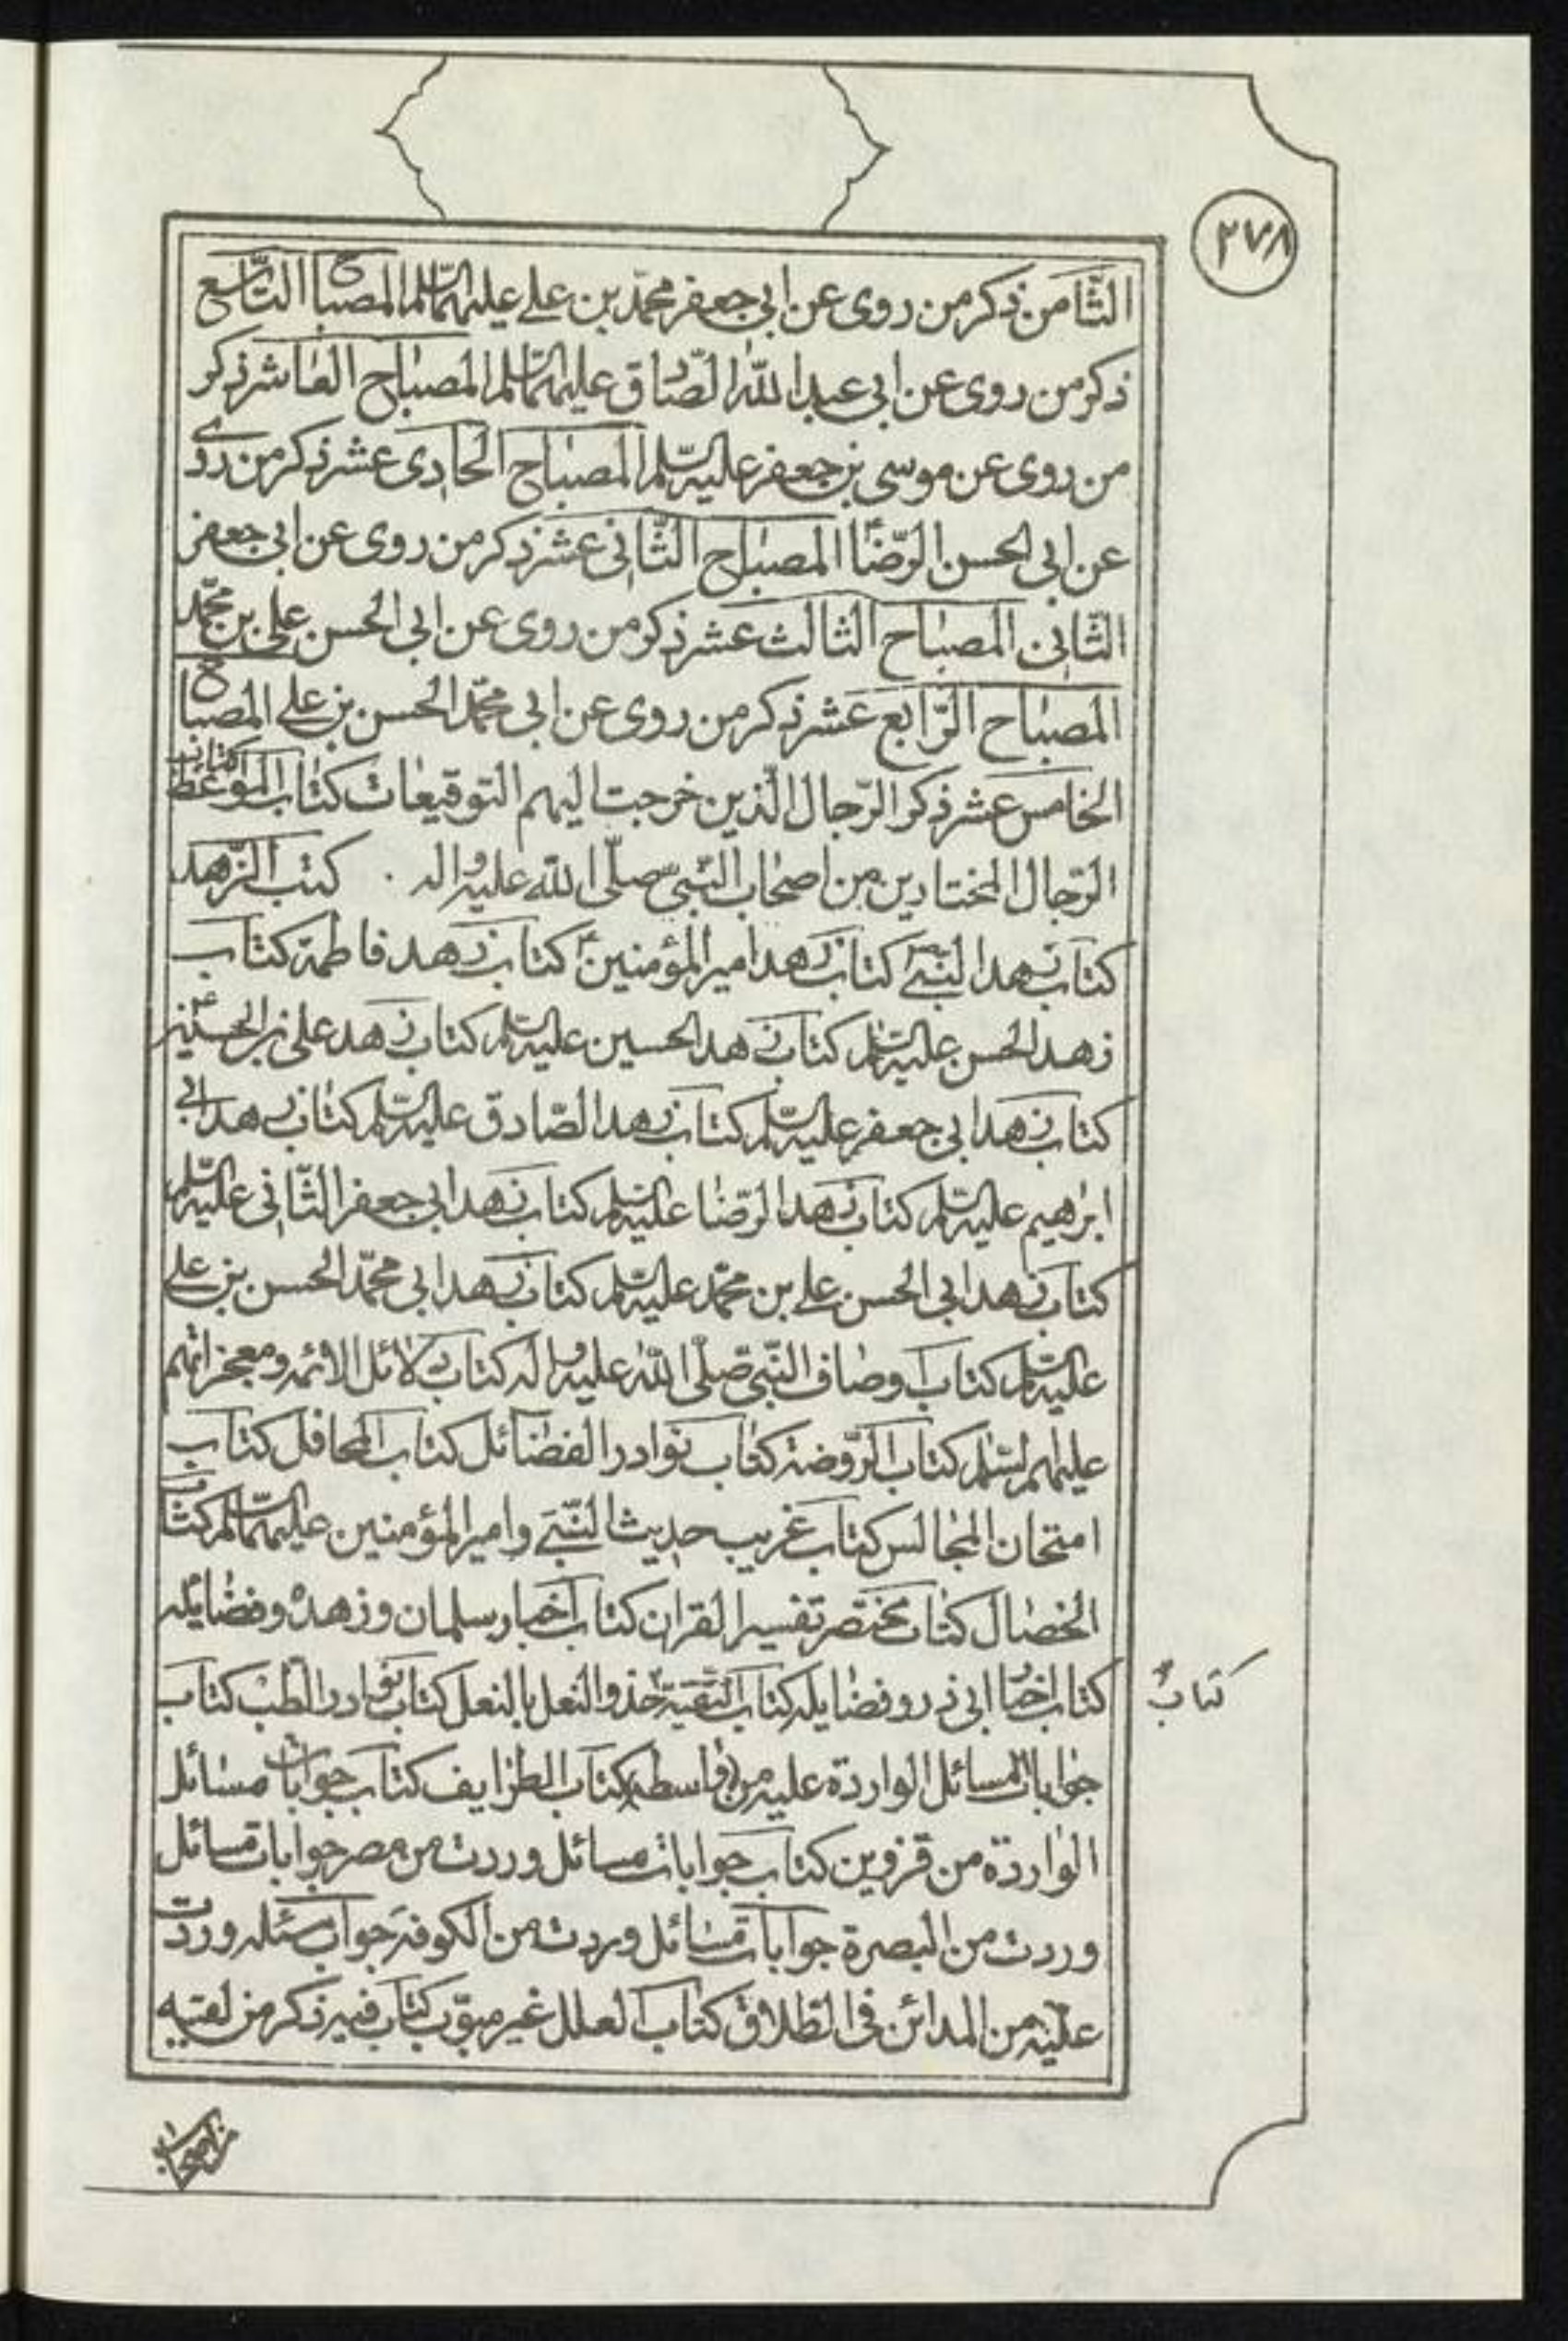 ٢٧٨
الثّامن ذكر من روى عن ابى جعفر محمّد بن على عليهماالسّلم المصباح التّاسع
ذكر من روى عن ابى عبد الله الصّادق عليهماالسّلم المصباح العاشر ذكر
من روى عن موسى بن جعفر عليه السّلم المصباح الحادى عشر ذكر من روى
عن ابى الحسن الرّضا المصباح الثّانى عشر ذكر من روى عن ابى جعفر
الثّانى المصباح الثالث عشر ذكر من روى عن ابى الحسن على بن محمّد
المصباح الرّابع عشر ذكر من روى عن ابى محمّد الحسن بن على المصباح
الخامس عشر ذكر الرّجال الّذين خرجت اليهم التوقيعات كتاب المواعظ كتاب
الرّجال المختارين من اصحاب النّبىّ صلّى الله عليه واله . كتب الزّهد
كتاب زهد النبىّ كتاب زهد امير المؤمنين كتاب زهد فاطمة كتاب
زهد الحسن عليه السّلم كتاب زهد الحسين عليه السّلم كتاب زهد على بن الحسين
كتاب زهد ابى جعفر عليه السّلم كتاب زهد الصّادق عليه السّلم كتاب زهد ابى
ابرهيم عليه السّلم كتاب زهد الرّضا عليه السّلم كتاب زهد ابى جعفر الثّانى عليه السّلم
كتاب زهد ابى الحسن على بن محمّد عليه السّلم كتاب زهد ابى محمّد الحسن بن على
عليه السّلم كتاب اوصاف النّبىّ صلّى الله عليه واله كتاب دلائل الائمه ومعجزاتهم
عليهم السّلم كتاب الرّوضة كتاب نوادر الفضائل كتاب المحافل كتاب
امتحان المجالس كتاب غريب حديث النّبىّ وامير المؤمنين عليهماالسّلم كتاب
الخصال كتاب مختصر تفسير القران كتاب اخبار سلمان وزهده وفضايله
كتاب اخبار ابى ذر وفضايله كتاب التّقيّة حذو النعل بالنعل كتاب نوادر الطّب كتاب
كتاب
جوابات المسائل الواردة عليه من واسط كتاب الطرايف كتاب جوابات مسائل
الواردة من قزوين كتاب جوابات مسائل وردت من مصر جوابات مسائل
وردت من البصرة جوابات مسائل وردت من الكوفة جواب مسئله وردت
عليه من المدائن فى الطّلاق كتاب العلل غير مبوّب كتاب فيه ذكر من لقيه
من اصحاب